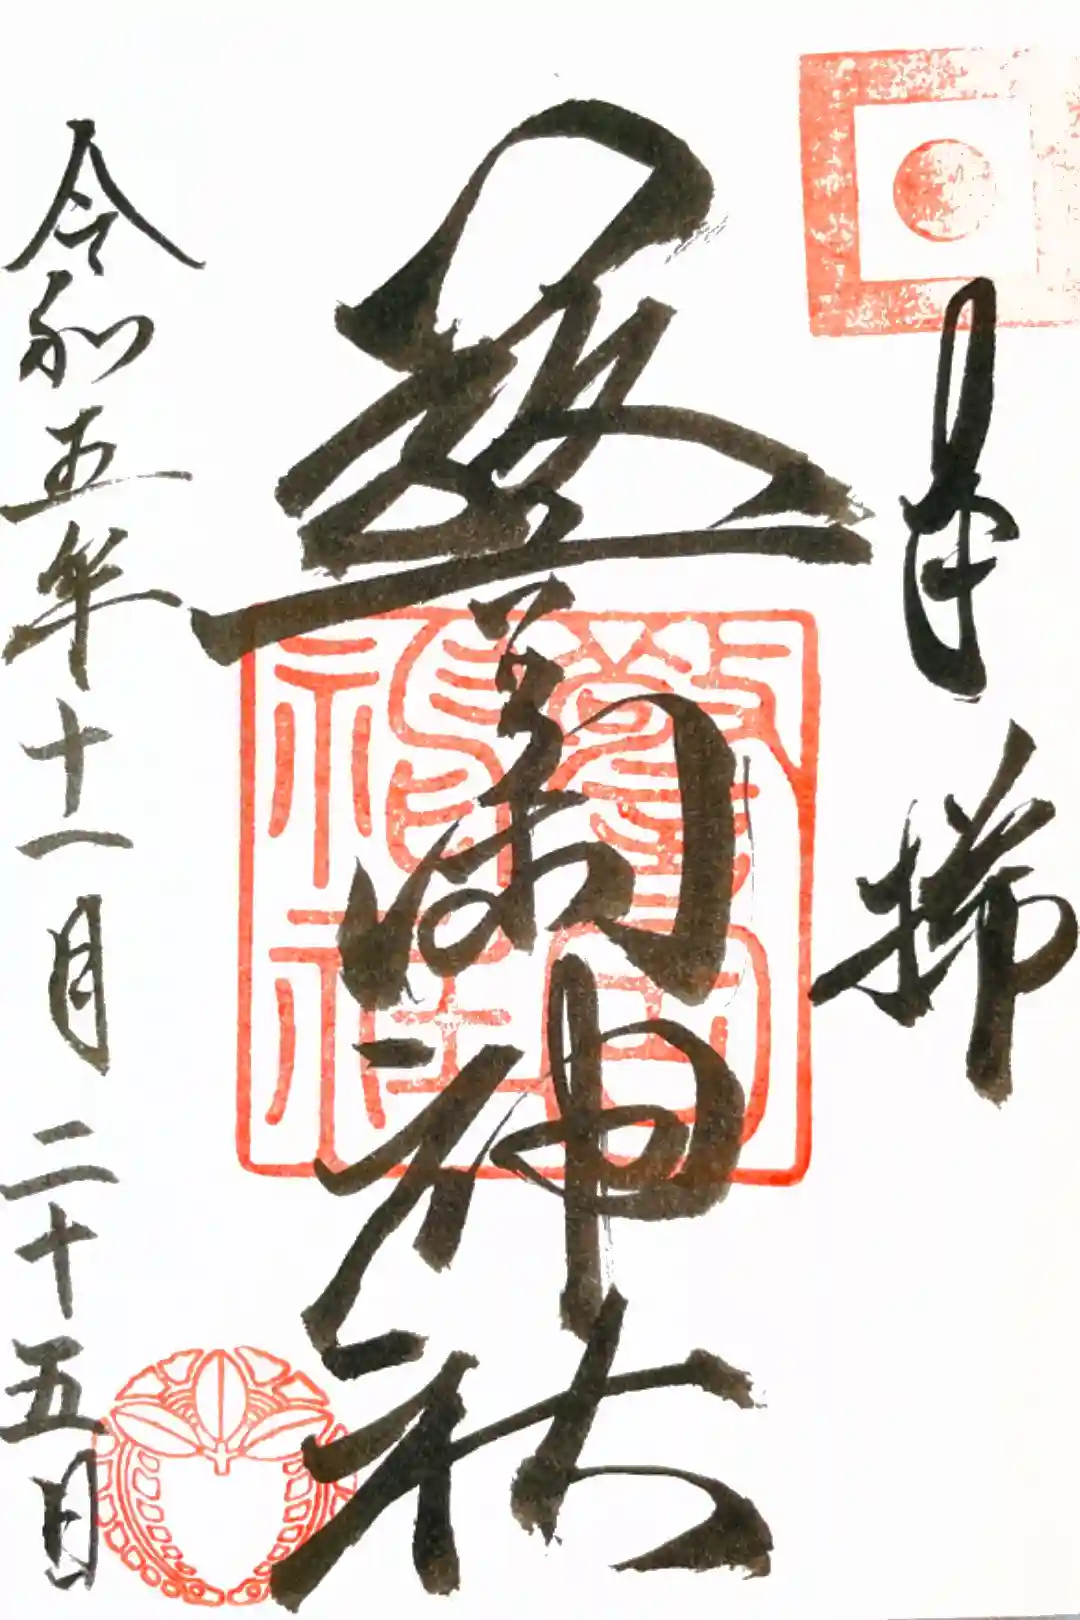 奉拝
警固神社
令和五年十一月二十五日
警固
神社